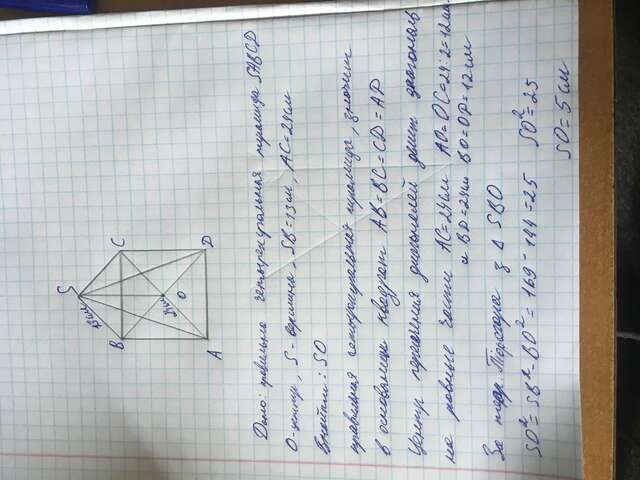 S
13см
B
C
24см
O
A
D
Дано: правильна чотирикутна піраміда SABCD
O-центр, S-вершина, SB=13см, AC=24см
Знайти: SO
правильная четырехугольная пирамида, значит
в основании квадрат AB=BC=CD=AD
Центр пересечения диагоналей делит диагональ
на равные части AC=24см AO=OC=24:2=12см
и BD=24см BO=OD=12см
За теор. Піфагора з Δ SBO
SO²=SB²-BO²=169-144=25 SO²=25
SO=5см